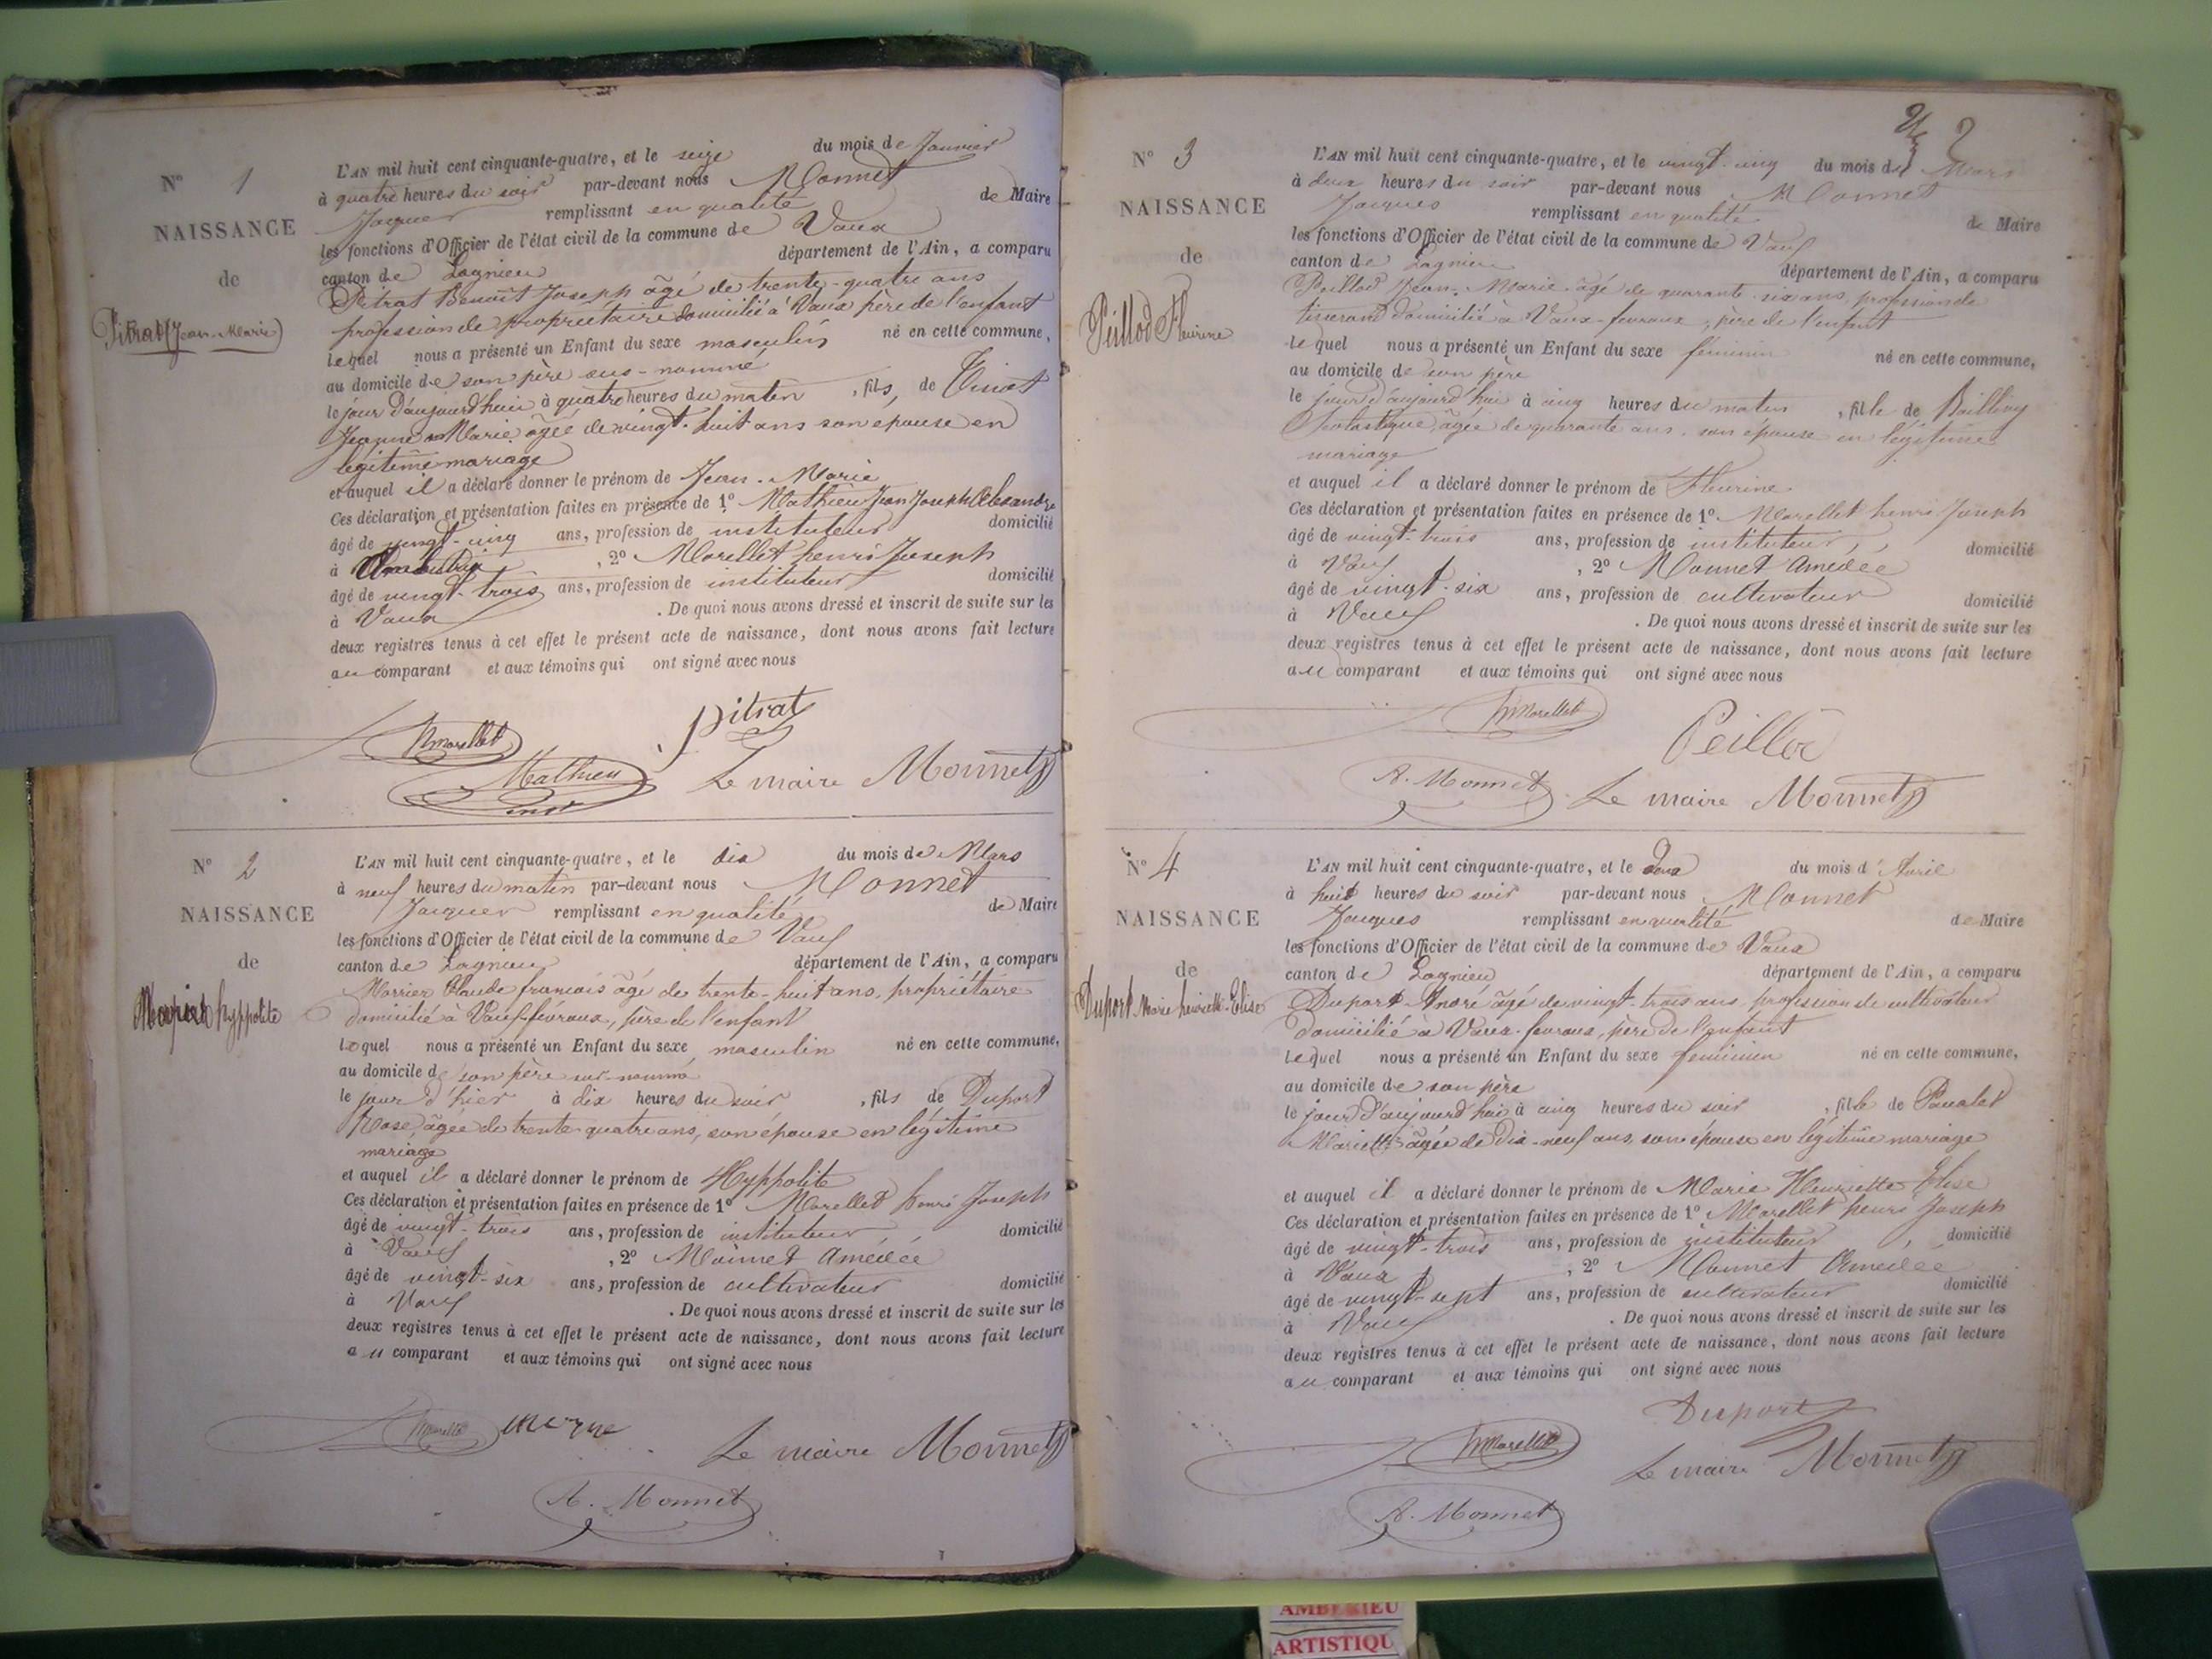 N° 1
NAISSANCE
de
Pitrat (Jean-Marie)
L'AN mil huit cent cinquante-quatre, et le seize du mois de Janvier
à quatre heures du soir par-devant nous Monnet
Jacques remplissant en qualité de Maire
les fonctions d'Officier de l'état civil de la commune de Vaux
canton de Lagnieu département de l'Ain, a comparu
Pitrat Benoît Joseph âgé de trente-quatre ans
profession de propriétaire domicilié à Vaux père de l'enfant
lequel nous a présenté un Enfant du sexe masculin né en cette commune,
au domicile de son père sus-nommé
le jour d'aujourd'hui à quatre heures du matin, fils, de
Jeanne Marie âgée de vingt-huit ans son épouse en
légitime mariage
et auquel il a déclaré donner le prénom de Jean-Marie
Ces déclaration et présentation faites en présence de 1° Mathieu Jean Joseph Alexandre
âgé de vingt-cinq ans, profession de instituteur domicilié
à , 2° Morellet henri Joseph
âgé de vingt-trois ans, profession de instituteur domicilié
à Vaux . De quoi nous avons dressé et inscrit de suite sur les
deux registres tenus à cet effet le présent acte de naissance, dont nous avons fait lecture
au comparant et aux témoins qui ont signé avec nous
hmorellet pitrat
Mathieu Le maire Monnet
N° 2
NAISSANCE
de
hyppolite
L'AN mil huit cent cinquante-quatre, et le dix du mois de Mars
à neuf heures du matin par-devant nous Monnet
Jacques remplissant en qualité de Maire
les fonctions d'Officier de l'état civil de la commune de Vaux
canton de Lagnieu département de l'Ain, a comparu
Claude françois âgé de trente-huit ans, propriétaire
domicilié à Vaux-févroux, père de l'enfant
lequel nous a présenté un Enfant du sexe masculin né en cette commune,
au domicile de son père sus-nommé
le jour d'hier à dix heures du soir, fils de Duport
Rose, âgée de trente-quatre ans, son épouse en légitime
mariage
et auquel il a déclaré donner le prénom de Hyppolite
Ces déclaration et présentation faites en présence de 1° Morellet henri Joseph
âgé de vingt-trois ans, profession de instituteur, domicilié
à Vaux, 2° Monnet Amédée
âgé de vingt-six ans, profession de cultivateur domicilié
à Vaux . De quoi nous avons dressé et inscrit de suite sur les
deux registres tenus à cet effet le présent acte de naissance, dont nous avons fait lecture
au comparant et aux témoins qui ont signé avec nous
hmorellet
Le maire Monnet
A. Monnet
2
N° 3
NAISSANCE
de
Peillod Fleurine
L'AN mil huit cent cinquante-quatre, et le vingt-cinq du mois de Mars
à deux heures du soir par-devant nous Monnet
Jacques remplissant en qualité de Maire
les fonctions d'Officier de l'état civil de la commune de Vaux
canton de Lagnieu département de l'Ain, a comparu
Peillod Jean-Marie âgé de quarante-six ans, profession de
tisserand domicilié à Vaux-fevroux, père de l'enfant
lequel nous a présenté un Enfant du sexe féminin né en cette commune,
au domicile de son père
le jour d'aujourd'hui à cinq heures du matin, fille de
Scolastique, âgée de quarante ans, son épouse en légitime
mariage
et auquel il a déclaré donner le prénom de Fleurine
Ces déclaration et présentation faites en présence de 1° Morellet henri Joseph
âgé de vingt-trois ans, profession de instituteur, domicilié
à Vaux, 2° Monnet Amédée
âgé de vingt-six ans, profession de cultivateur domicilié
à Vaux . De quoi nous avons dressé et inscrit de suite sur les
deux registres tenus à cet effet le présent acte de naissance, dont nous avons fait lecture
au comparant et aux témoins qui ont signé avec nous
hmorellet
Peillod
A. Monnet Le maire Monnet
N° 4
NAISSANCE
de
Duport Marie henriette-Elise
L'AN mil huit cent cinquante-quatre, et le deux du mois d'Avril
à huit heures du soir par-devant nous Monnet
Jacques remplissant en qualité de Maire
les fonctions d'Officier de l'état civil de la commune de Vaux
canton de Lagnieu département de l'Ain, a comparu
Duport André âgé de vingt-trois ans, profession de cultivateur
domicilié à Vaux-fevroux, père de l'enfant
lequel nous a présenté un Enfant du sexe féminin né en cette commune,
au domicile de son père
le jour d'aujourd'hui à cinq heures du soir, fille de
Mariette âgée de dix-neuf ans, son épouse en légitime mariage
et auquel il a déclaré donner le prénom de Marie Henriette Elise
Ces déclaration et présentation faites en présence de 1° Morellet henri Joseph
âgé de vingt-trois ans, profession de instituteur, domicilié
à Vaux, 2° Monnet Amédée
âgé de vingt-sept ans, profession de cultivateur domicilié
à Vaux . De quoi nous avons dressé et inscrit de suite sur les
deux registres tenus à cet effet le présent acte de naissance, dont nous avons fait lecture
au comparant et aux témoins qui ont signé avec nous
Duport
hmorellet
Le maire Monnet
A. Monnet
AMBERIEU
ARTISTIQU